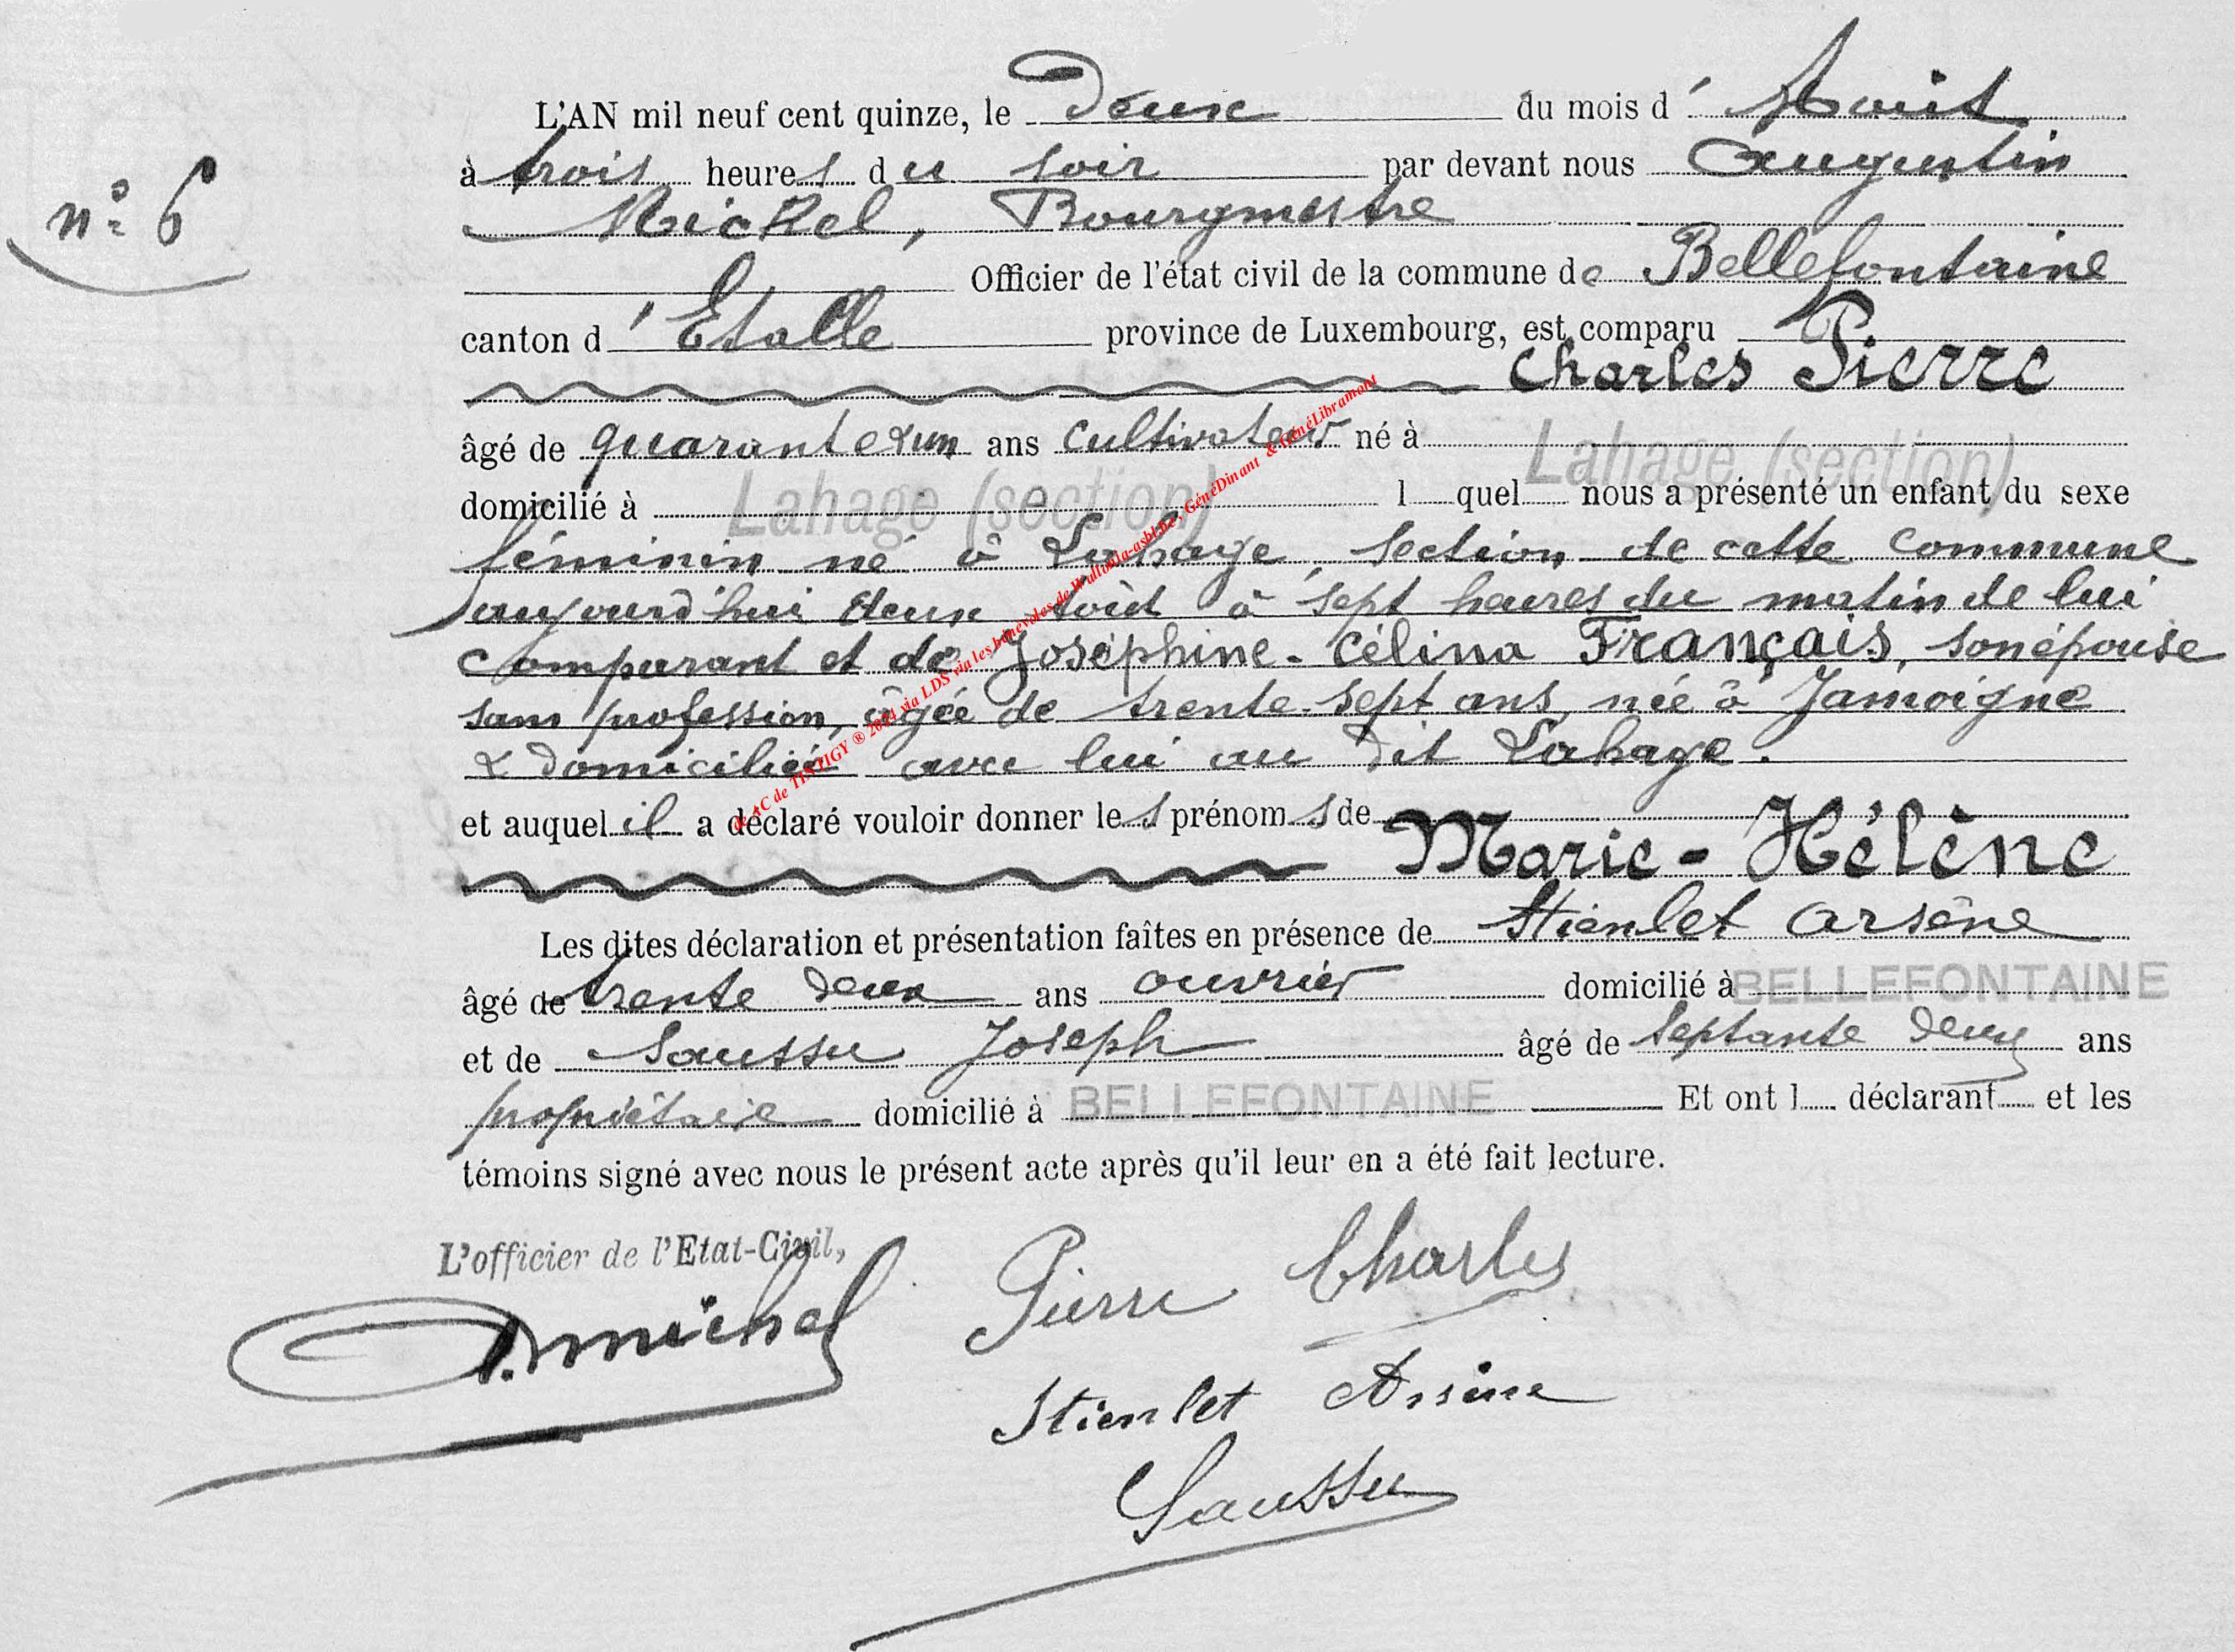 n° 6
L'AN mil neuf cent quinze, le Deux du mois d' Août
à trois heures du soir par devant nous Augustin
Michel, Bourgmestre
Officier de l'état civil de la commune de Bellefontaine
canton d' Etalle province de Luxembourg, est comparu
Charles Pierre
âgé de quarante & un ans cultivateur né à Lahage (section)
domicilié à Lahage (section) l quel nous a présenté un enfant du sexe
féminin né à Lahage, section de cette commune
aujourd'hui deux août à sept heures du matin de lui
comparant et de Joséphine-Célina Français, son épouse
sans profession, âgée de trente-sept ans, née à Jamoigne
& domiciliée avec lui au dit Lahage.
et auquel il a déclaré vouloir donner les prénoms de
Marie-Hélène
Les dites déclaration et présentation faîtes en présence de Stienlet Arsène
âgé de trente deux ans ouvrier domicilié à BELLEFONTAINE
et de Saussu Joseph âgé de septante deux ans
propriétaire domicilié à BELLEFONTAINE Et ont l déclarant et les
témoins signé avec nous le présent acte après qu'il leur en a été fait lecture.
L'officier de l'Etat-Civil,
A. Michel
Pierre Charles
Stienlet Arsène
Saussu
de AC de TINTIGY ® 2024 via LDS via les bénévoles de Wallonia-asbl.be, GénéDinant & GénéLibramont